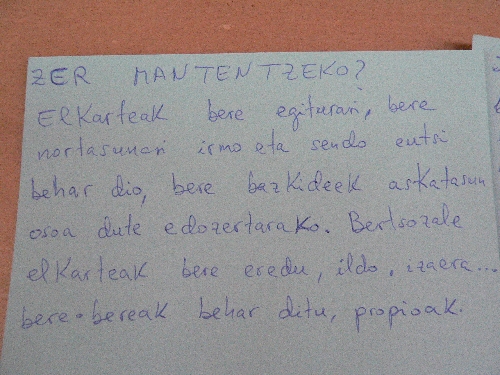 ZER MANTENTZEKO?
Elkarteak bere egiturari, bere
nortasunari irmo eta sendo eutsi
behar dio, bere bazkideek askatasun
osoa dute edozertarako. Bertsozale
elkarteak bere eredu, ildo, izaera...
bere-bereak behar ditu, propioak.